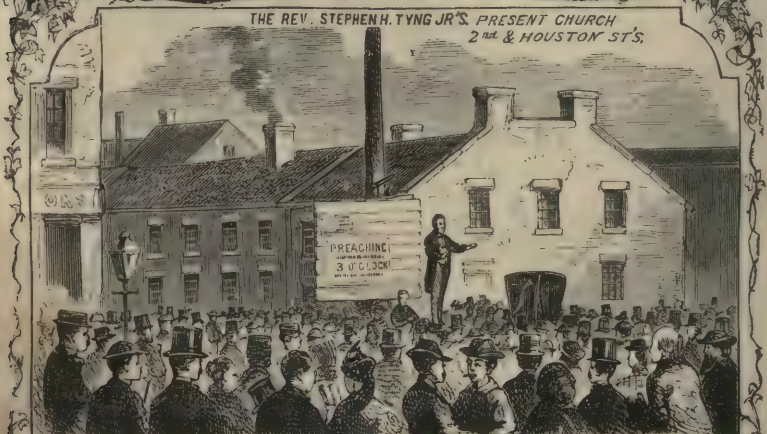 THE REV. STEPHEN H. TYNG JR'S. PRESENT CHURCH
2nd & HOUSTON ST'S.
PREACHING
3 O'CLOCK